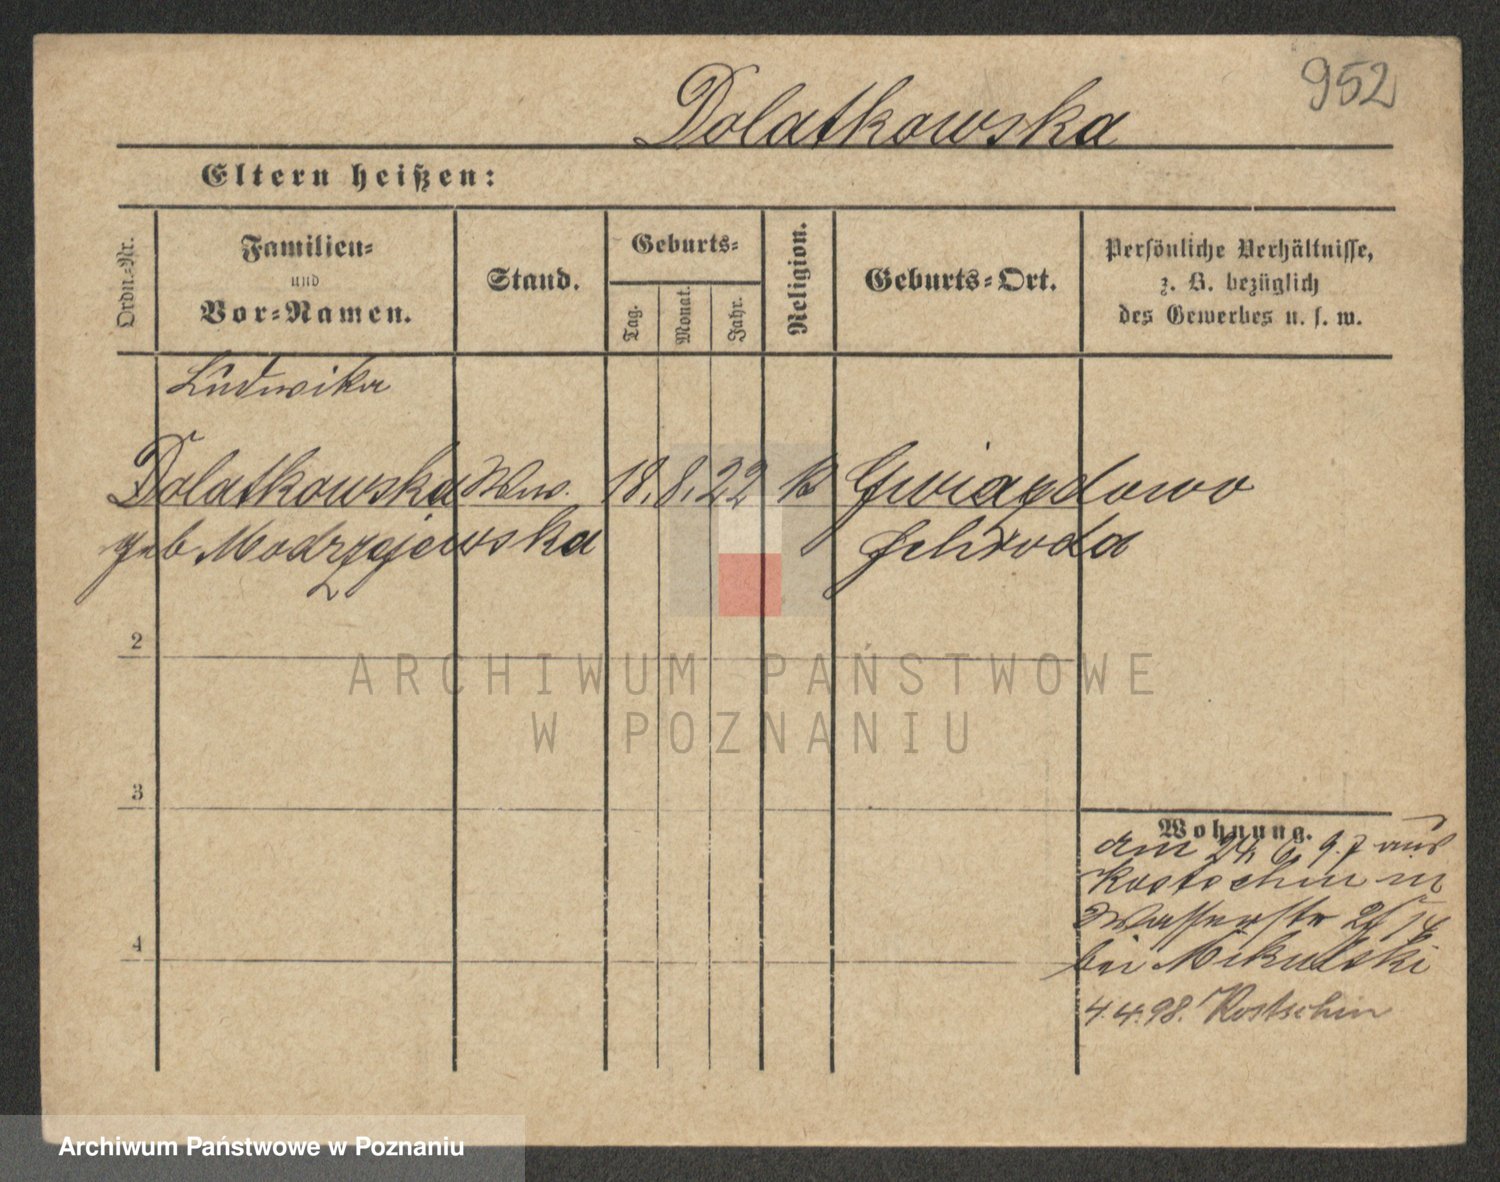 952
Dolatkowska
Eltern heißen:
Ordn.-Nr.
Familien-
und
Vor-Namen.
Stand.
Geburts-
Tag.
Monat.
Jahr.
Religion.
Geburts-Ort.
Persönliche Verhältnisse,
z. B. bezüglich
des Gewerbes u. s. w.
Ludwika
Dolatkowska Wwe. 18. 8. 22 k Gwiazdowo
geb Modrzejewska Schroda
2
3
4
Wohnung.
am 24 6. 97 aus
Kostschin in
Wasserstr
bei Mikulski
4.4.98. Kostschin
ARCHIWUM PAŃSTWOWE
W POZNANIU
Archiwum Państwowe w Poznaniu